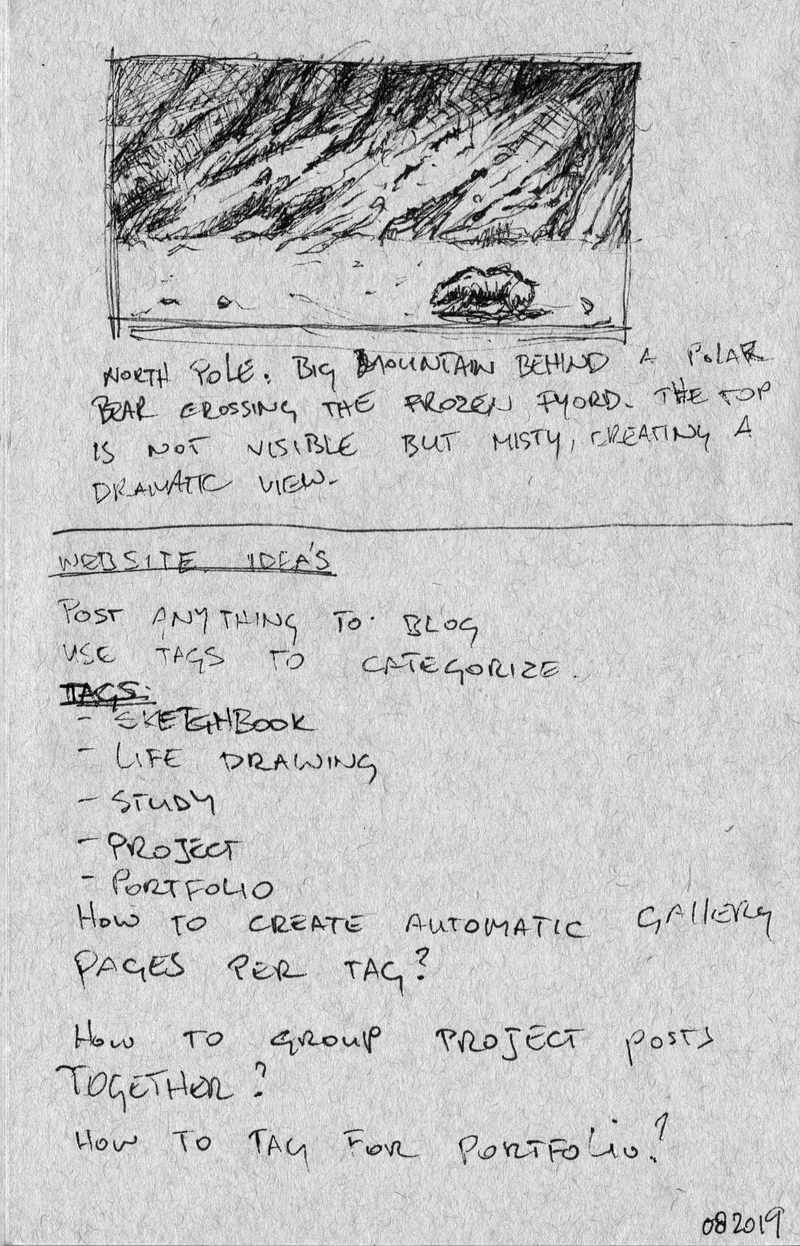 NORTH POLE. BIG MOUNTAIN BEHIND A POLAR
BEAR CROSSING THE FROZEN FYORD. THE TOP
IS NOT VISIBLE BUT MISTY, CREATING A
DRAMATIC VIEW.
WEBSITE IDEA'S
POST ANYTHING TO BLOG
USE TAGS TO CATEGORIZE.
TAGS:
- SKETCHBOOK
- LIFE DRAWING
- STUDY
- PROJECT
- PORTFOLIO
HOW TO CREATE AUTOMATIC GALLERY
PAGES PER TAG?
HOW TO GROUP PROJECT POSTS
TOGETHER?
HOW TO TAG FOR PORTFOLIO?
082019